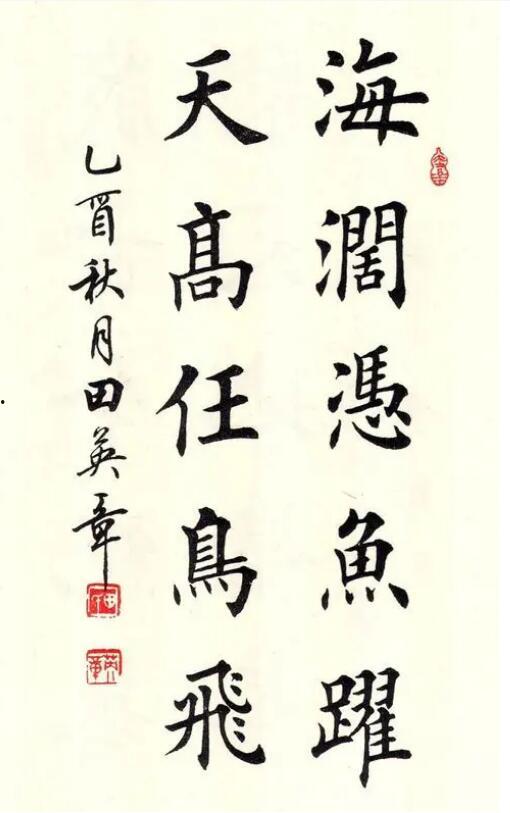 海濶憑魚躍
天髙任鳥飛
乙酉秋月田英章